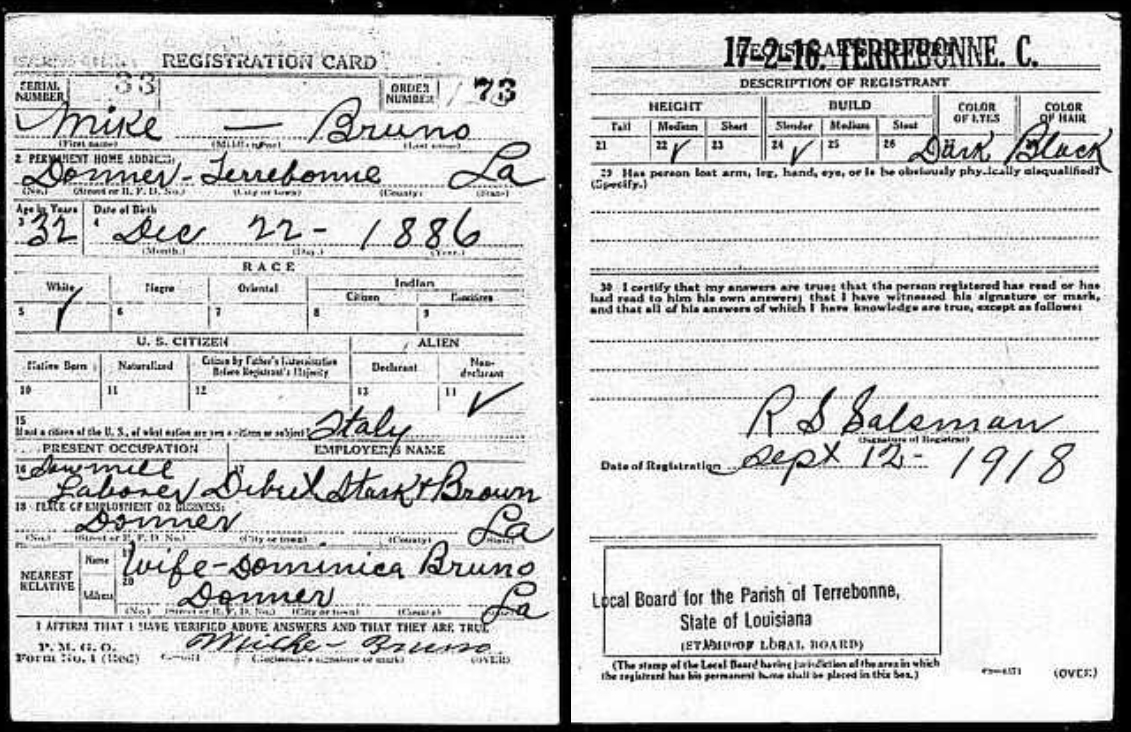 REGISTRATION CARD
SERIAL NUMBER 33 ORDER NUMBER 173
Mike — Bruno
(First name) (Middle name) (Last name)
2 PERMANENT HOME ADDRESS:
Donner - Terrebonne La
(No.) (Street or R. F. D. No.) (City or town) (County) (State)
Age in Years Date of Birth
3 32 4 Dec 22 - 1886
(Month.) (Day.) (Year.)
RACE
White Negro Oriental Indian
Citizen Noncitizen
5 6 7 8 9
U. S. CITIZEN ALIEN
Native Born Naturalized Citizen by Father's Naturalization Before Registrant's Majority Declarant Non-declarant
10 11 12 13 14
15
If not a citizen of the U. S., of what nation are you a citizen or subject? Italy
PRESENT OCCUPATION EMPLOYER'S NAME
16 Sawmill 17
Laborer Dibert Stark & Brown
18 PLACE OF EMPLOYMENT OR BUSINESS:
Donner La
(No.) (Street or R. F. D. No.) (City or town) (County) (State)
NEAREST RELATIVE
Name 19 Wife - Dominica Bruno
Address 20 Donner La
(No.) (Street or R. F. D. No.) (City or town) (County) (State)
I AFFIRM THAT I HAVE VERIFIED ABOVE ANSWERS AND THAT THEY ARE TRUE
P. M. G. O.
Form No. 1 (Red) Mike - Bruno
(Registrant's signature or mark) (OVER)
REGISTRAR'S REPORT
17-2-16. TERREBONNE. C.
DESCRIPTION OF REGISTRANT
HEIGHT BUILD COLOR OF EYES COLOR OF HAIR
Tall Medium Short Slender Medium Stout
21 22 23 24 25 26 Dark Black
29 Has person lost arm, leg, hand, eye, or is he obviously physically disqualified?
(Specify.)
30 I certify that my answers are true; that the person registered has read or has
had read to him his own answers; that I have witnessed his signature or mark,
and that all of his answers of which I have knowledge are true, except as follows:
R S Salsman
(Signature of Registrar)
Date of Registration Sept 12 - 1918
Local Board for the Parish of Terrebonne,
State of Louisiana
(STAMP OF LOCAL BOARD)
(The stamp of the Local Board having jurisdiction of the area in which
the registrant has his permanent home shall be placed in this box.)
(OVER)